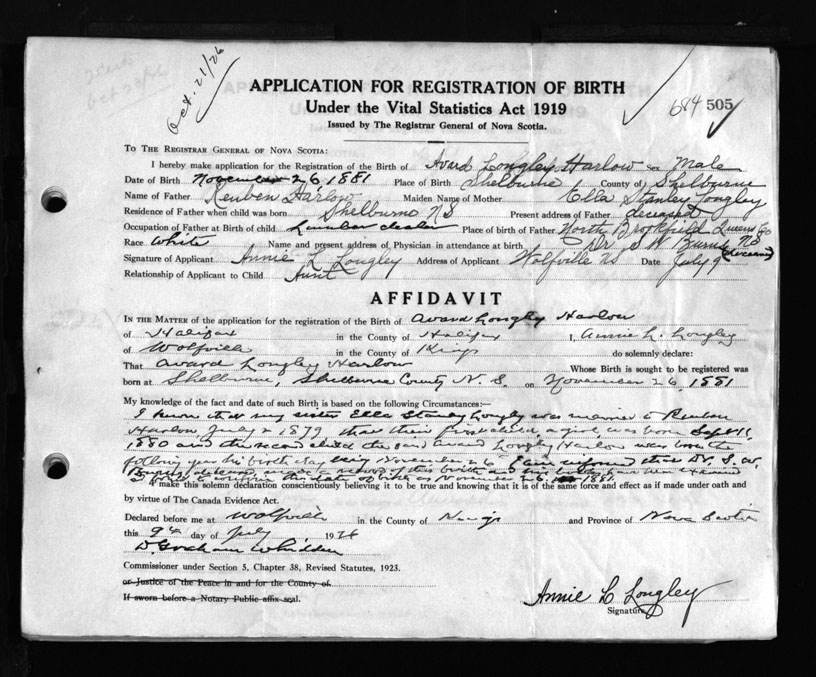 Oct. 21/26
APPLICATION FOR REGISTRATION OF BIRTH
Under the Vital Statistics Act 1919
Issued by The Registrar General of Nova Scotia.
684 505
TO THE REGISTRAR GENERAL OF NOVA SCOTIA:
I hereby make application for the Registration of the Birth of Avard Longley Harlow Sex Male
Date of Birth November 26, 1881 Place of Birth Shelburne County of Shelburne
Name of Father Reuben Harlow Maiden Name of Mother Ella Stanley Longley
Residence of Father when child was born Shelburne NS Present address of Father deceased
Occupation of Father at Birth of child Lumber dealer Place of birth of Father North Brookfield Queens Co
Race White Name and present address of Physician in attendance at birth Dr. S W NS (deceased)
Signature of Applicant Annie L Longley Address of Applicant Wolfville NS Date July 9
Relationship of Applicant to Child Aunt
AFFIDAVIT
IN THE MATTER of the application for the registration of the Birth of Avard Longley Harlow
of Halifax in the County of Halifax I, Annie L. Longley
of Wolfville in the County of Kings do solemnly declare:
That Avard Longley Harlow Whose Birth is sought to be registered was
born at Shelburne, Shelburne County N. S. on November 26, 1881
My knowledge of the fact and date of such Birth is based on the following Circumstances:—
I know that my sister Ella Stanley Longley was married to Reuben
Harlow July 2 1879 that their first child a girl was born Sept 11,
1880 and the second child the said Avard Longley Harlow was born the
following year his birthday being November 26. I am informed that Dr. S. W.
deceased made a record of this birth and
the date of birth as November 26, 1881.
I make this solemn declaration conscientiously believing it to be true and knowing that it is of the same force and effect as if made under oath and
by virtue of The Canada Evidence Act.
Declared before me at Wolfville in the County of Kings and Province of Nova Scotia
this 9th day of July 1926
D Graham Whidden
Commissioner under Section 5, Chapter 38, Revised Statutes, 1923.
or Justice of the Peace in and for the County of
If sworn before a Notary Public affix seal.
Annie L Longley
Signature